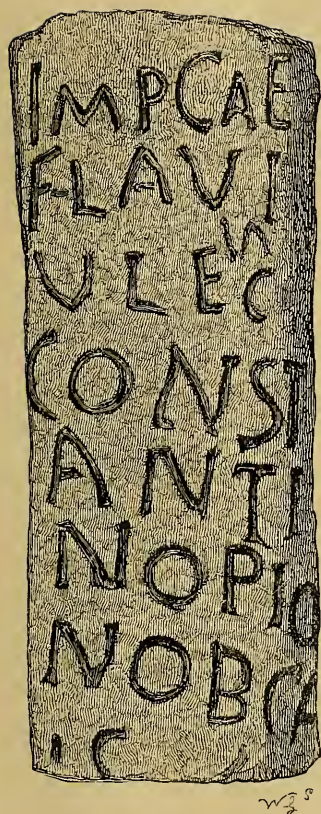 IMPCAE
FLAVI
VLEC
CONST
ANTI
NOPIO
NOBCA